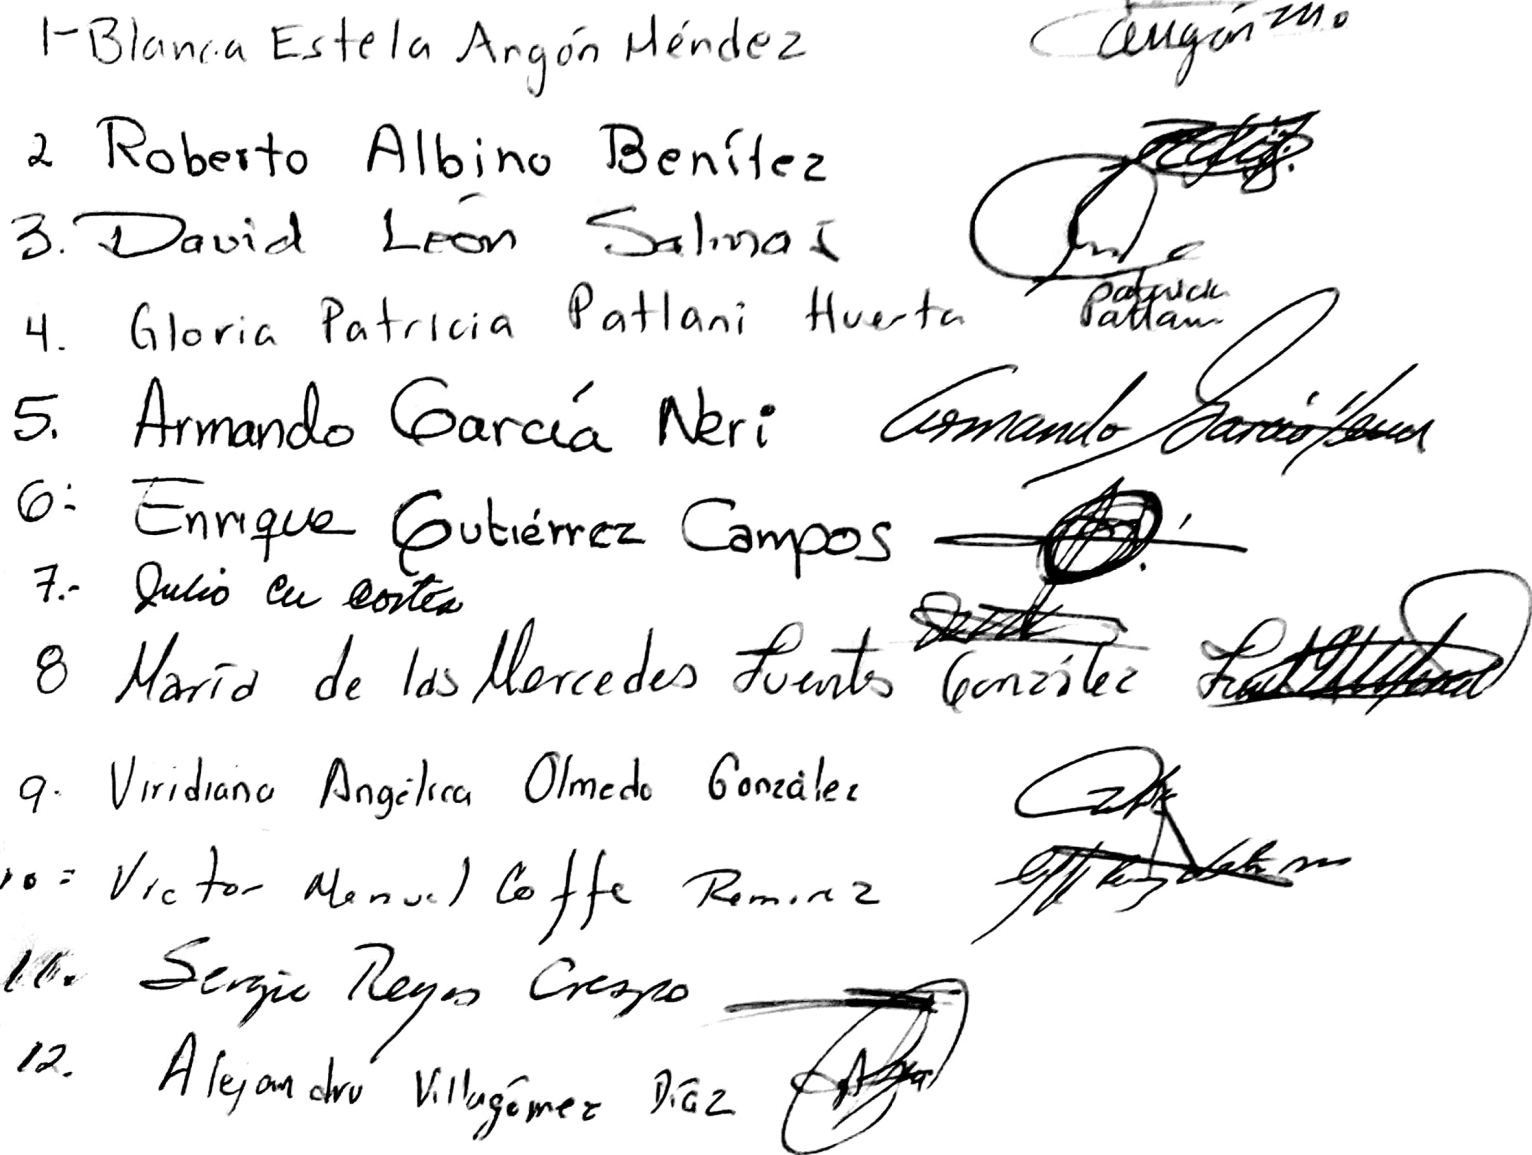 1- Blanca Estela Argón Méndez
2 Roberto Albino Benítez
3. David León Salinas
4. Gloria Patricia Patlani Huerta Patricia Patlani
5. Armando García Neri Armando García
6: Enrique Gutiérrez Campos
7.- Julio
8 María de las Mercedes Fuentes González
9. Viridiana Angélica Olmedo González
10= Victor Manuel Coffe Ramirez
11. Sergio Reyes Crespo
12. Alejandro Villagómez Díaz